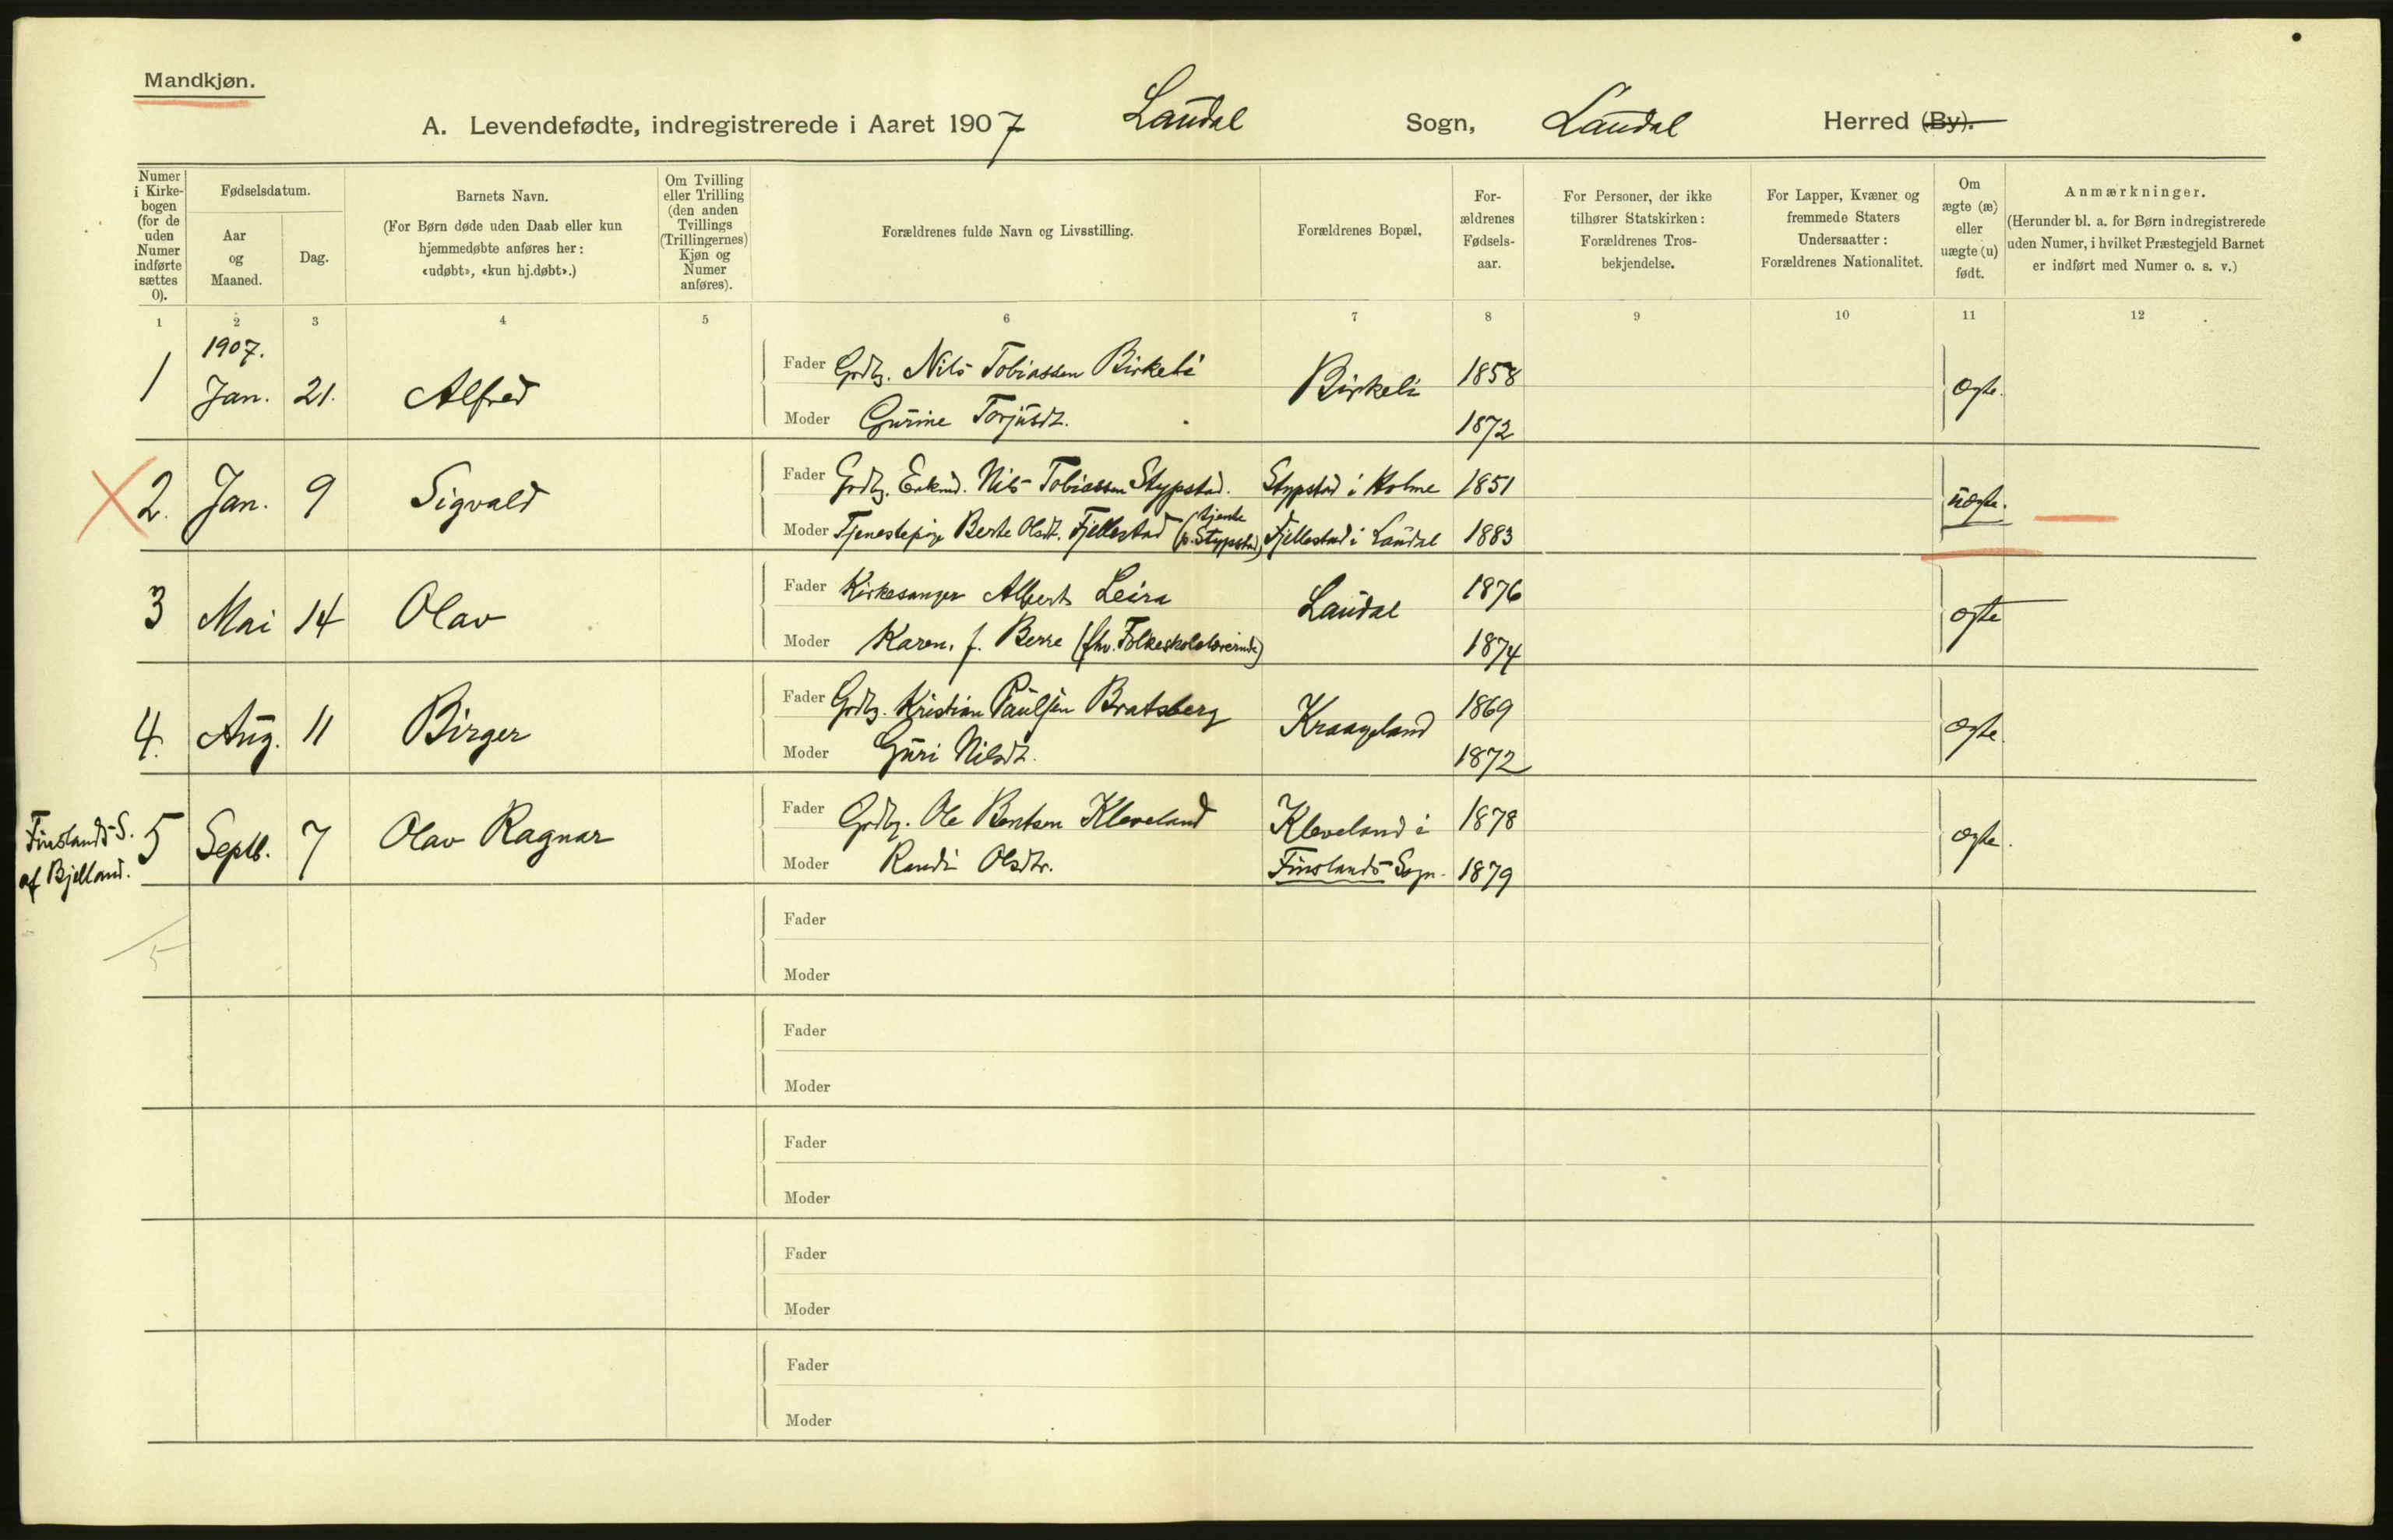 Mandkjøn.
A. Levendefødte, indregistrerede i Aaret 1907 Laudal Sogn, Laudal Herred (By).
Numer i Kirkebogen (for de uden Numer indførte sættes 0).
Fødselsdatum.
Aar og Maaned.
Dag.
Barnets Navn.
(For Børn døde uden Daab eller kun hjemmedøbte anføres her: «udøbt», «kun hj.døbt».)
Om Tvilling eller Trilling (den anden Tvillings (Trillingernes) Kjøn og Numer anføres).
Forældrenes fulde Navn og Livsstilling.
Forældrenes Bopæl,
Forældrenes Fødselsaar.
For Personer, der ikke tilhører Statskirken: Forældrenes Trosbekjendelse.
For Lapper, Kvæner og fremmede Staters Undersaatter: Forældrenes Nationalitet.
Om ægte (æ) eller uægte (u) født.
Anmærkninger.
(Herunder bl. a. for Børn indregistrerede uden Numer, i hvilket Præstegjeld Barnet er indført med Numer o. s. v.)
1 2 3 4 5 6 7 8 9 10 11 12
1907.
1 Jan. 21. Alfred
Fader Grdbr. Nils Tobiassen Birkeli Birkeli 1858 ægte.
Moder Gurine Torjusdt. 1872
2. Jan. 9 Sigvald
Fader Grdbr. Enkmd. Nils Tobiassen Stypstad. Stypstad i Holme 1851 uægte.
Moder Tjenestepige Berte Olsdt. Fjellestad (tjente p. Stypstad) Fjellestad i Laudal 1883
3 Mai 14 Olav
Fader Kirkesanger Albert Leira Laudal 1876 ægte
Moder Karen, f. Berre (fhv. Folkeskolelærerinde) 1874
4. Aug. 11 Birger
Fader Grdbr. Kristian Paulsen Bratsberg Kraageland 1869 ægte.
Moder Guri Nilsdt. 1872
Finslands S. af Bjelland.
5 Septb. 7 Olav Ragnar
Fader Grdbr. Ole Bentsen Kleveland Kleveland i 1878 ægte.
Moder Randi Olsdtr. Finslands Sogn. 1879
5
Fader
Moder
Fader
Moder
Fader
Moder
Fader
Moder
Fader
Moder